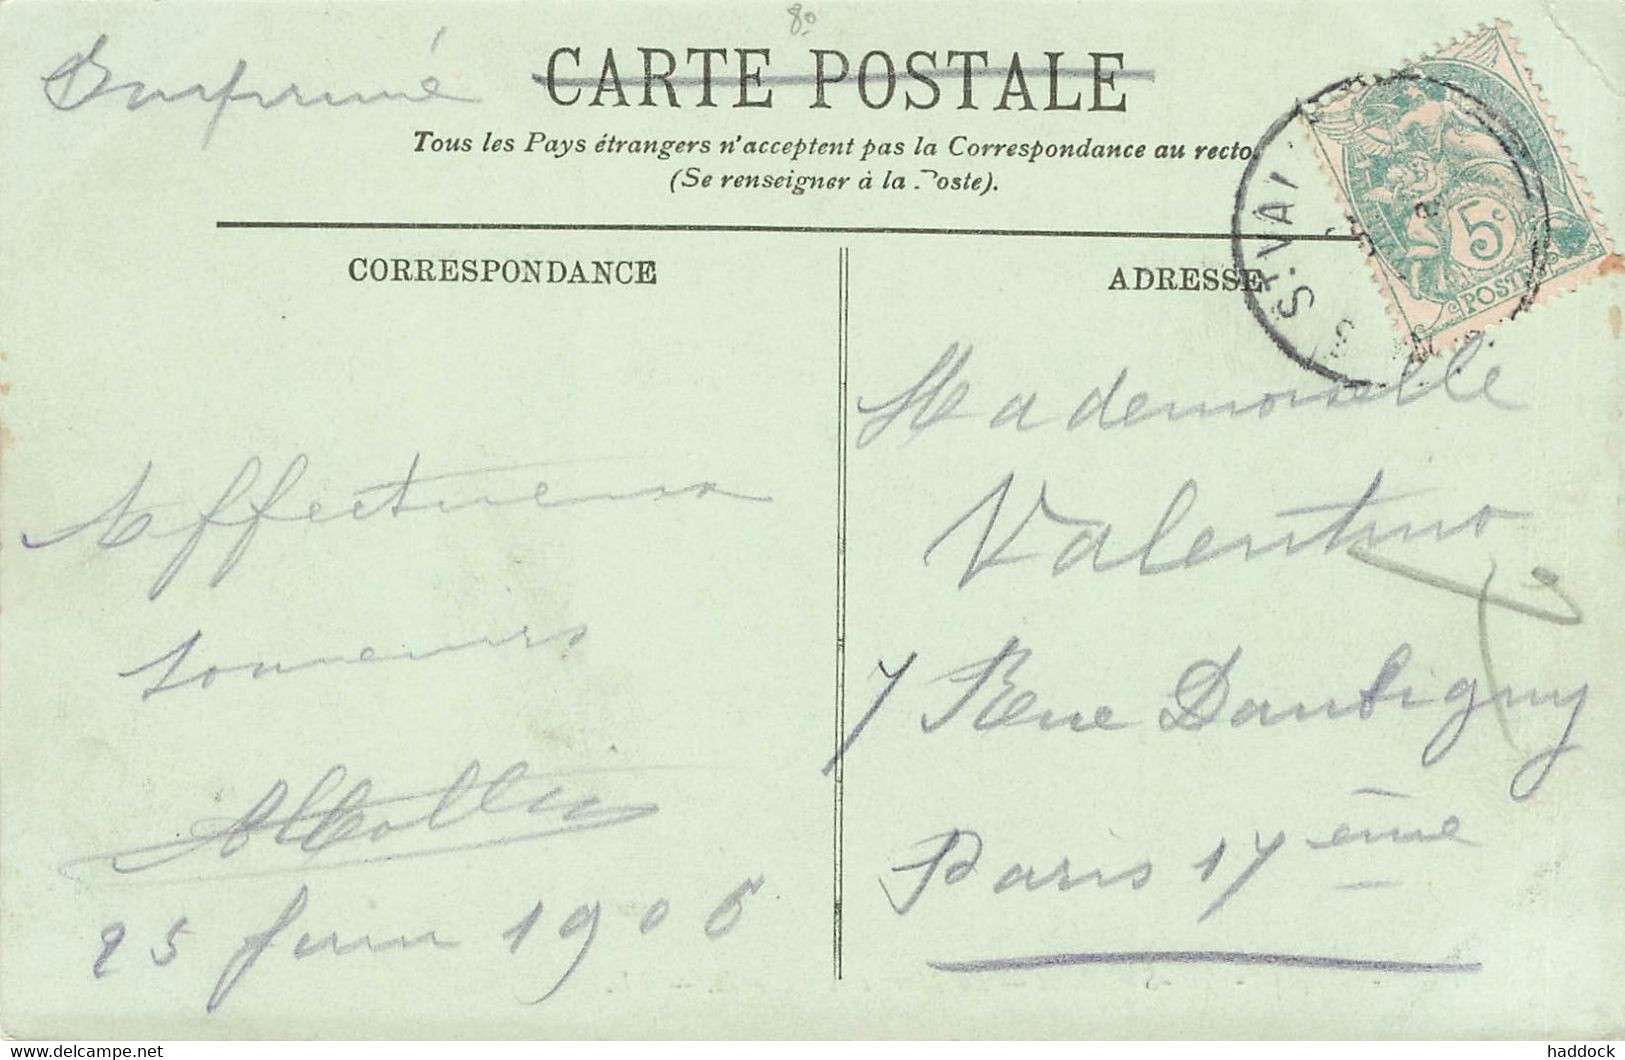 Imprimé
CARTE POSTALE
Tous les Pays étrangers n'acceptent pas la Correspondance au recto.
(Se renseigner à la Poste).
S T. VAL
5c
POSTES
CORRESPONDANCE
ADRESSE
Affectueux
souvenirs
25 Juin 1906
Mademoiselle
Valentino
7 Rue Dautigny
Paris 17 ème
www.delcampe.net
haddock